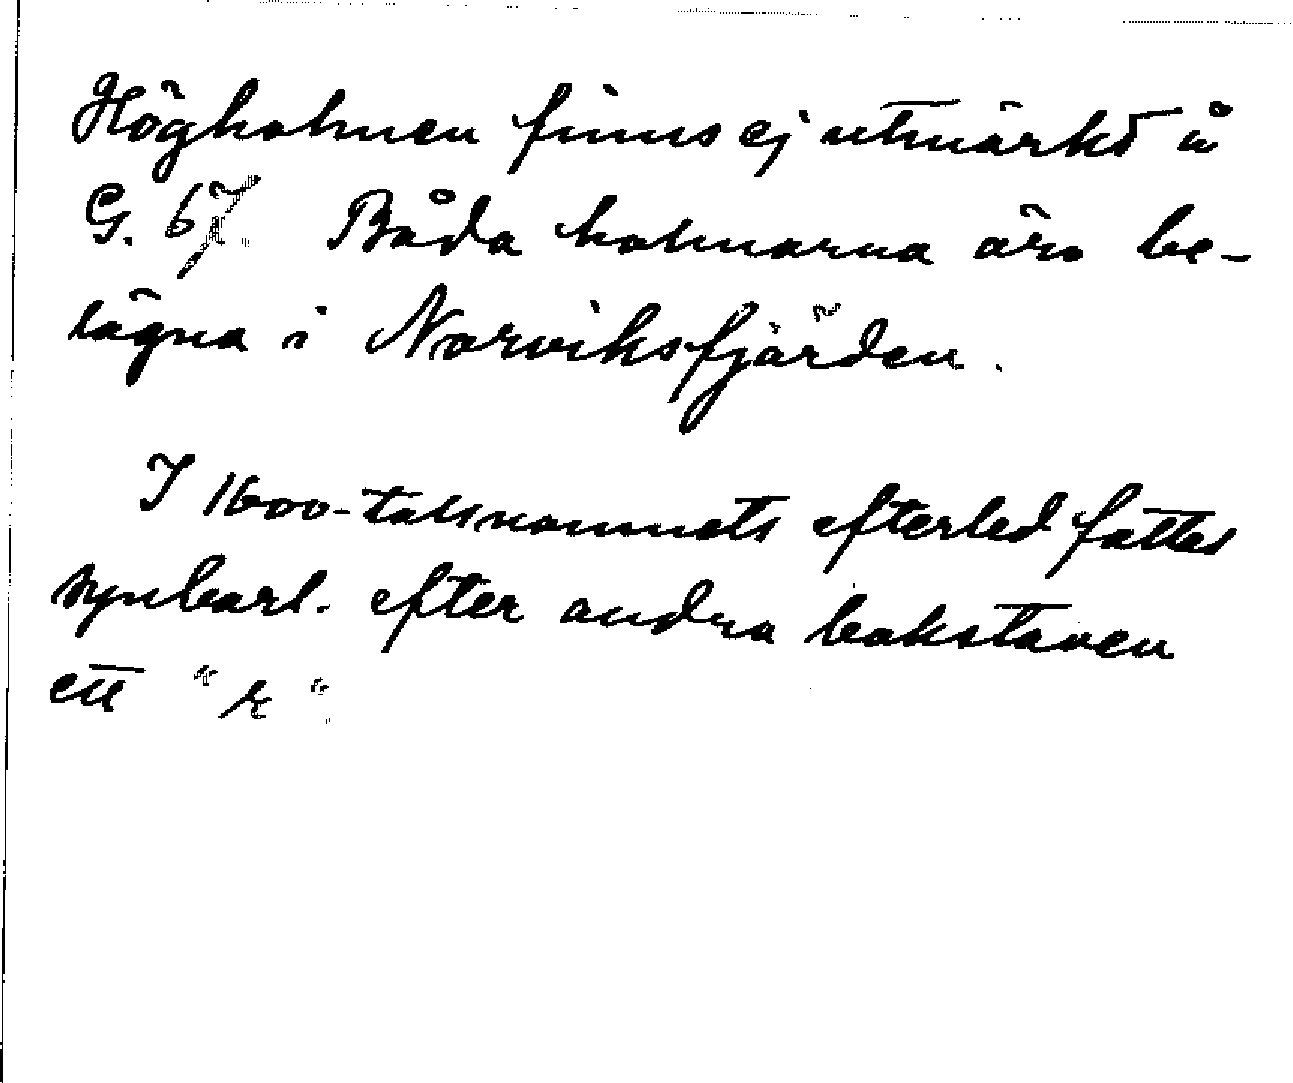 Högholmen finns ej utmärkt å
G. 67. Båda holmarna äro be-
lägna i Norviksfjärden.
I 1600-talsnamnets efterled fattas
synbarl. efter andra bokstaven
ett "k".